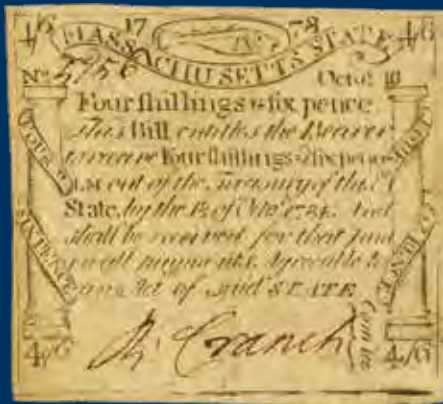 4/6 17 78 4/6
MASSACHUSETTS STATE
No. 5956 Octor. 18
Four shillings & six pence
This Bill entitles the Bearer
to receive Four shillings & six pence
L.M. out of the Treasury of this
State, by the 1st of Octor. 1784. And
shall be received for that Sum
in all payments, Agreeable to
an Act of said STATE
R. Cranch
Comtee
FOUR SH
SIXPENCE
SIX PENCE
4/6 4/6